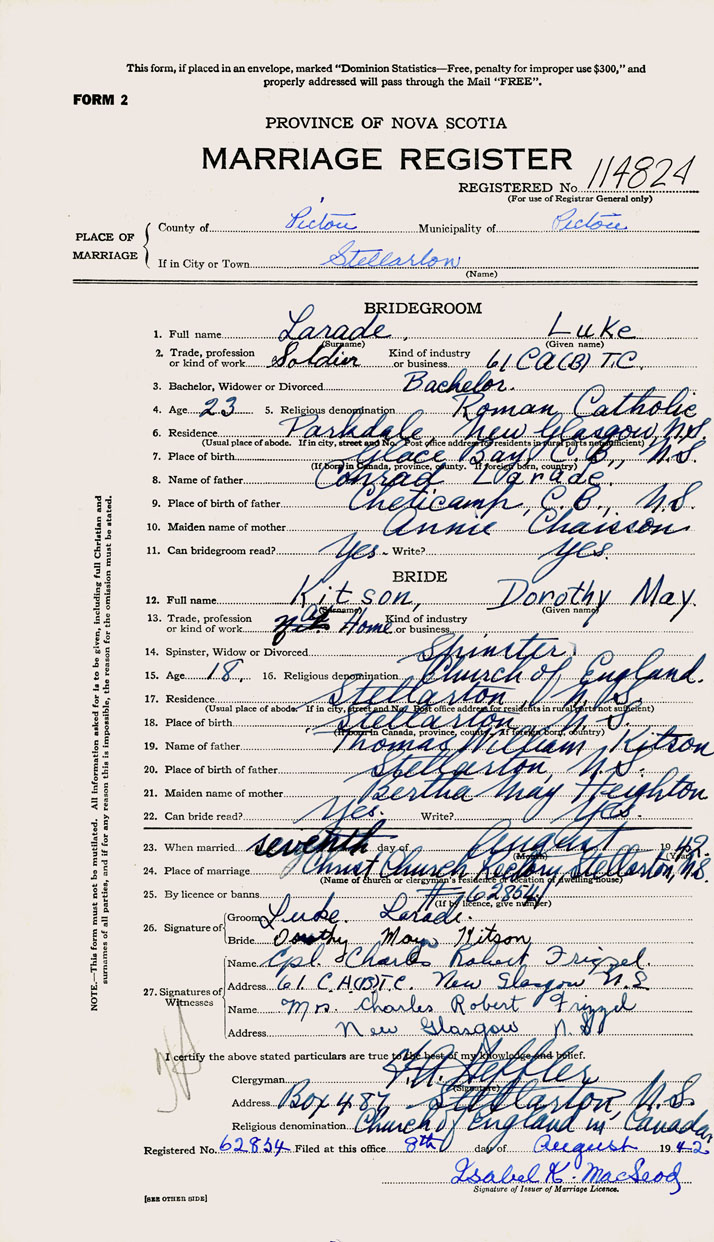 This form, if placed in an envelope, marked "Dominion Statistics—Free, penalty for improper use $300," and
properly addressed will pass through the Mail "FREE".
FORM 2
PROVINCE OF NOVA SCOTIA
MARRIAGE REGISTER
REGISTERED No. 114824
(For use of Registrar General only)
PLACE OF MARRIAGE
County of Pictou Municipality of Pictou
If in City or Town Stellarton
(Name)
BRIDEGROOM
1. Full name Larade, Luke
(Surname) (Given name)
2. Trade, profession or kind of work Soldier Kind of industry or business 61 CA(B) T.C.
3. Bachelor, Widower or Divorced Bachelor.
4. Age 23 5. Religious denomination Roman Catholic
6. Residence Parkdale, New Glasgow, N.S.
(Usual place of abode. If in city, street and No. Post office address for residents in rural parts not sufficient)
7. Place of birth Glace Bay, C.B., N.S.
(If born in Canada, province, county. If foreign born, country)
8. Name of father Conrad Larade.
9. Place of birth of father Cheticamp, C.B., N.S.
10. Maiden name of mother Annie Chaisson
11. Can bridegroom read? Yes - Write? yes.
BRIDE
12. Full name Kitson, Dorothy May.
(Surname) (Given name)
13. Trade, profession or kind of work at Home Kind of industry or business
14. Spinster, Widow or Divorced Spinster
15. Age 18. 16. Religious denomination Church of England.
17. Residence Stellarton, N.S.
(Usual place of abode. If in city, street and No. Post office address for residents in rural parts not sufficient)
18. Place of birth Stellarton, N.S.
(If born in Canada, province, county. If foreign born, country)
19. Name of father Thomas William Kitson
20. Place of birth of father Stellarton, N.S.
21. Maiden name of mother Bertha May Heighton
22. Can bride read? Yes. Write? Yes.
23. When married seventh day of August 1942
(Month) (Year)
24. Place of marriage Christ Church Rectory, Stellarton, N.S.
(Name of church or clergyman's residence or location of dwelling house)
25. By licence or banns # 62834
(If by licence, give number)
26. Signature of
Groom Luke Larade.
Bride Dorothy May Kitson
27. Signatures of Witnesses
Name Cpl. Charles Robert Frizzel.
Address 61 C.A(B)T.C. New Glasgow N.S
Name Mrs. Charles Robert Frizzel
Address New Glasgow N.S
I certify the above stated particulars are true to the best of my knowledge and belief.
Clergyman Heffler
(Signature)
Address Box 487 Stellarton, N.S.
Religious denomination Church of England in Canada
Registered No. 62834 Filed at this office 8th day of August 1942
Isabel K. MacLeod
Signature of Issuer of Marriage Licence.
[SEE OTHER SIDE]
NOTE.—This form must not be mutilated. All information asked for is to be given, including full Christian and
surnames of all parties, and if for any reason this is impossible, the reason for the omission must be stated.